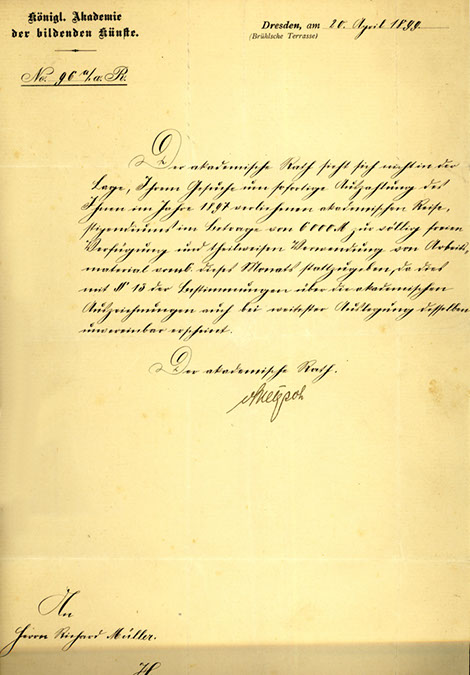 Königl. Akademie
der bildenden Künste.
Dresden, am 20. April 1899
(Brühlsche Terrasse)
No. 96 a/a. R.
Der akademische Rath sieht sich nicht in der
Lage, Ihrem Gesuche um sofortige Auszahlung des
Ihnen im Jahre 1897 verliehenen akademischen Reise,
stipendiums im Betrage von 6000 M. zur völlig freien
Verfügung und theilweisen Verwendung von Arbeits,
material vom 6. dieses Monats stattzugeben, da dies
mit § 13 der Bestimmungen über die akademischen
Auszeichnungen auch bei weitester Auslegung desselben
unvereinbar erscheint.
Der akademische Rath.
An
Herrn Richard Müller.
H